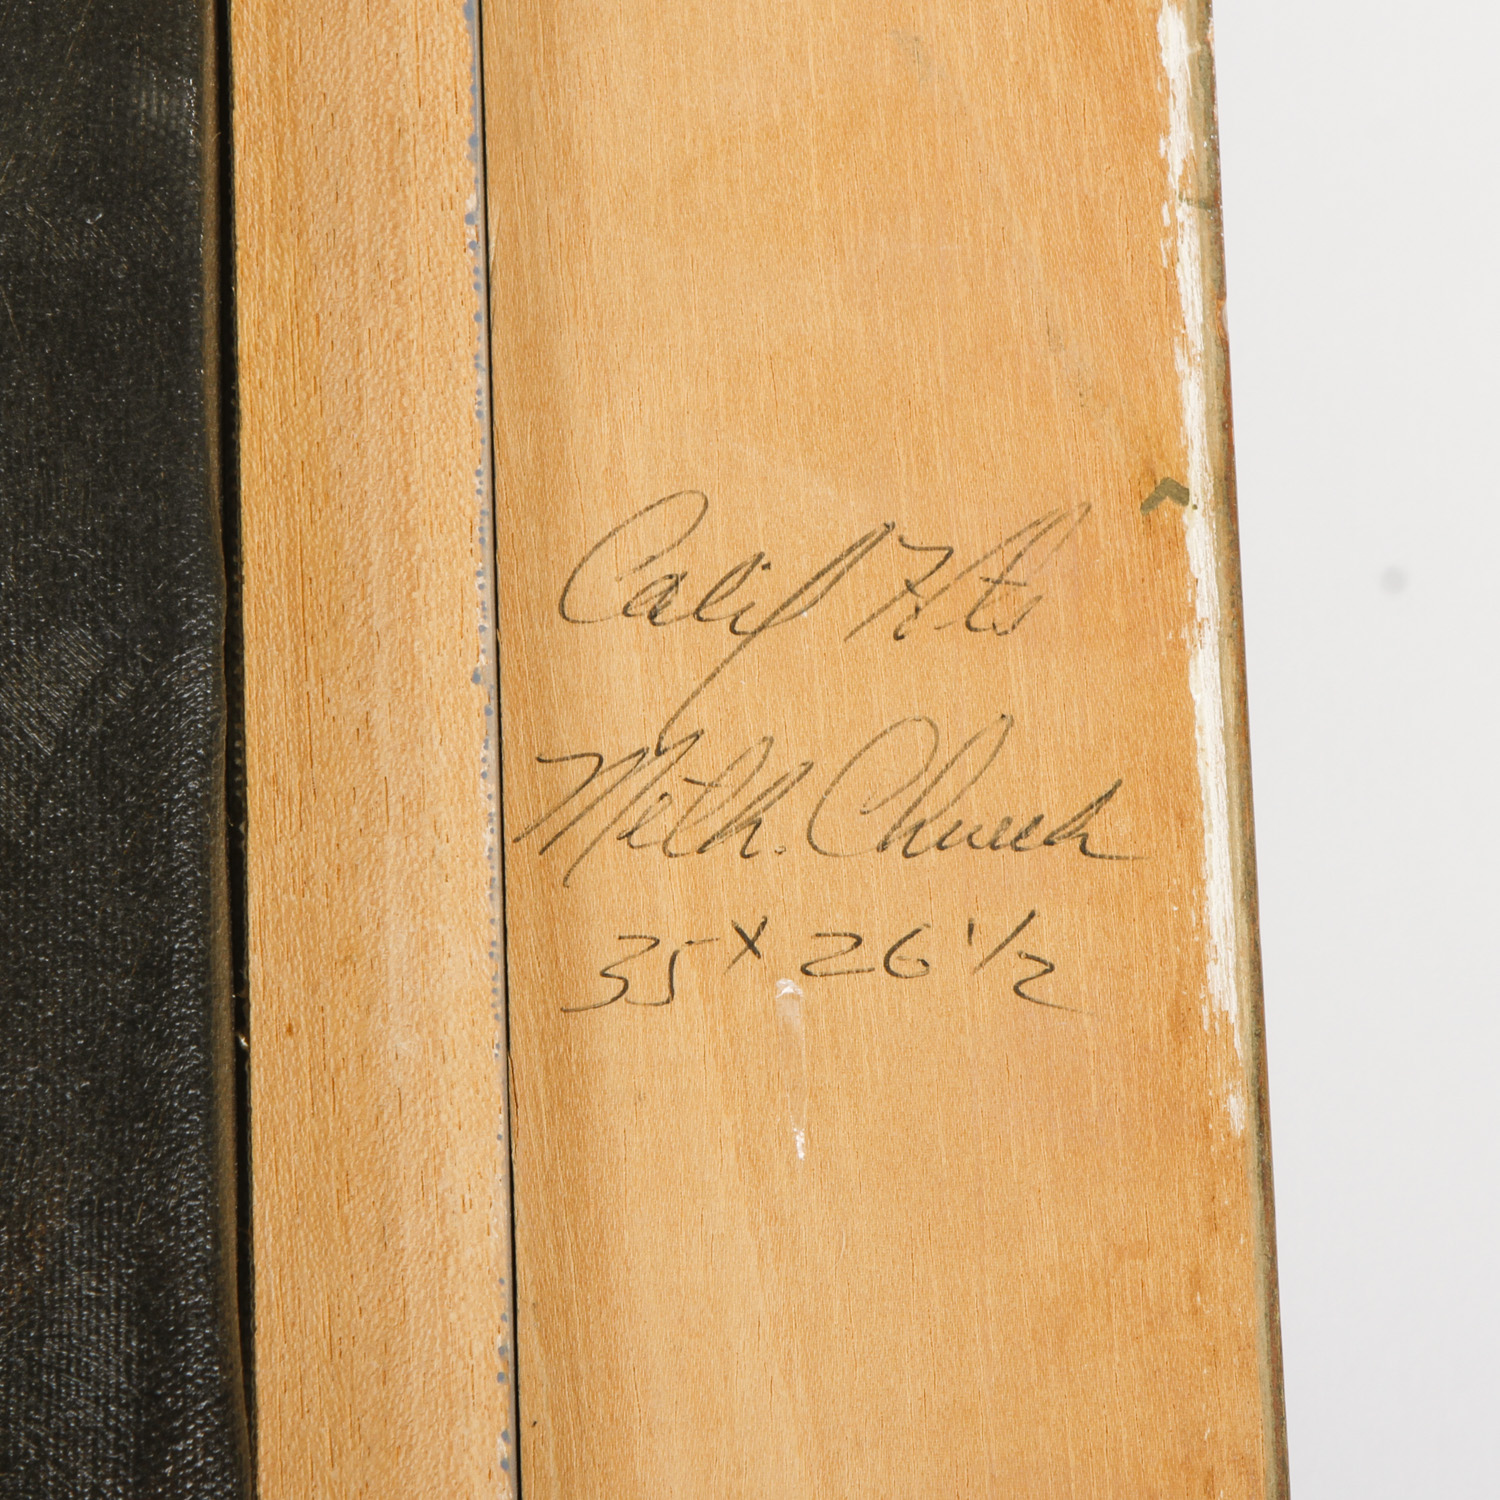 Calif Hts
Meth. Church
35 x 26 1/2